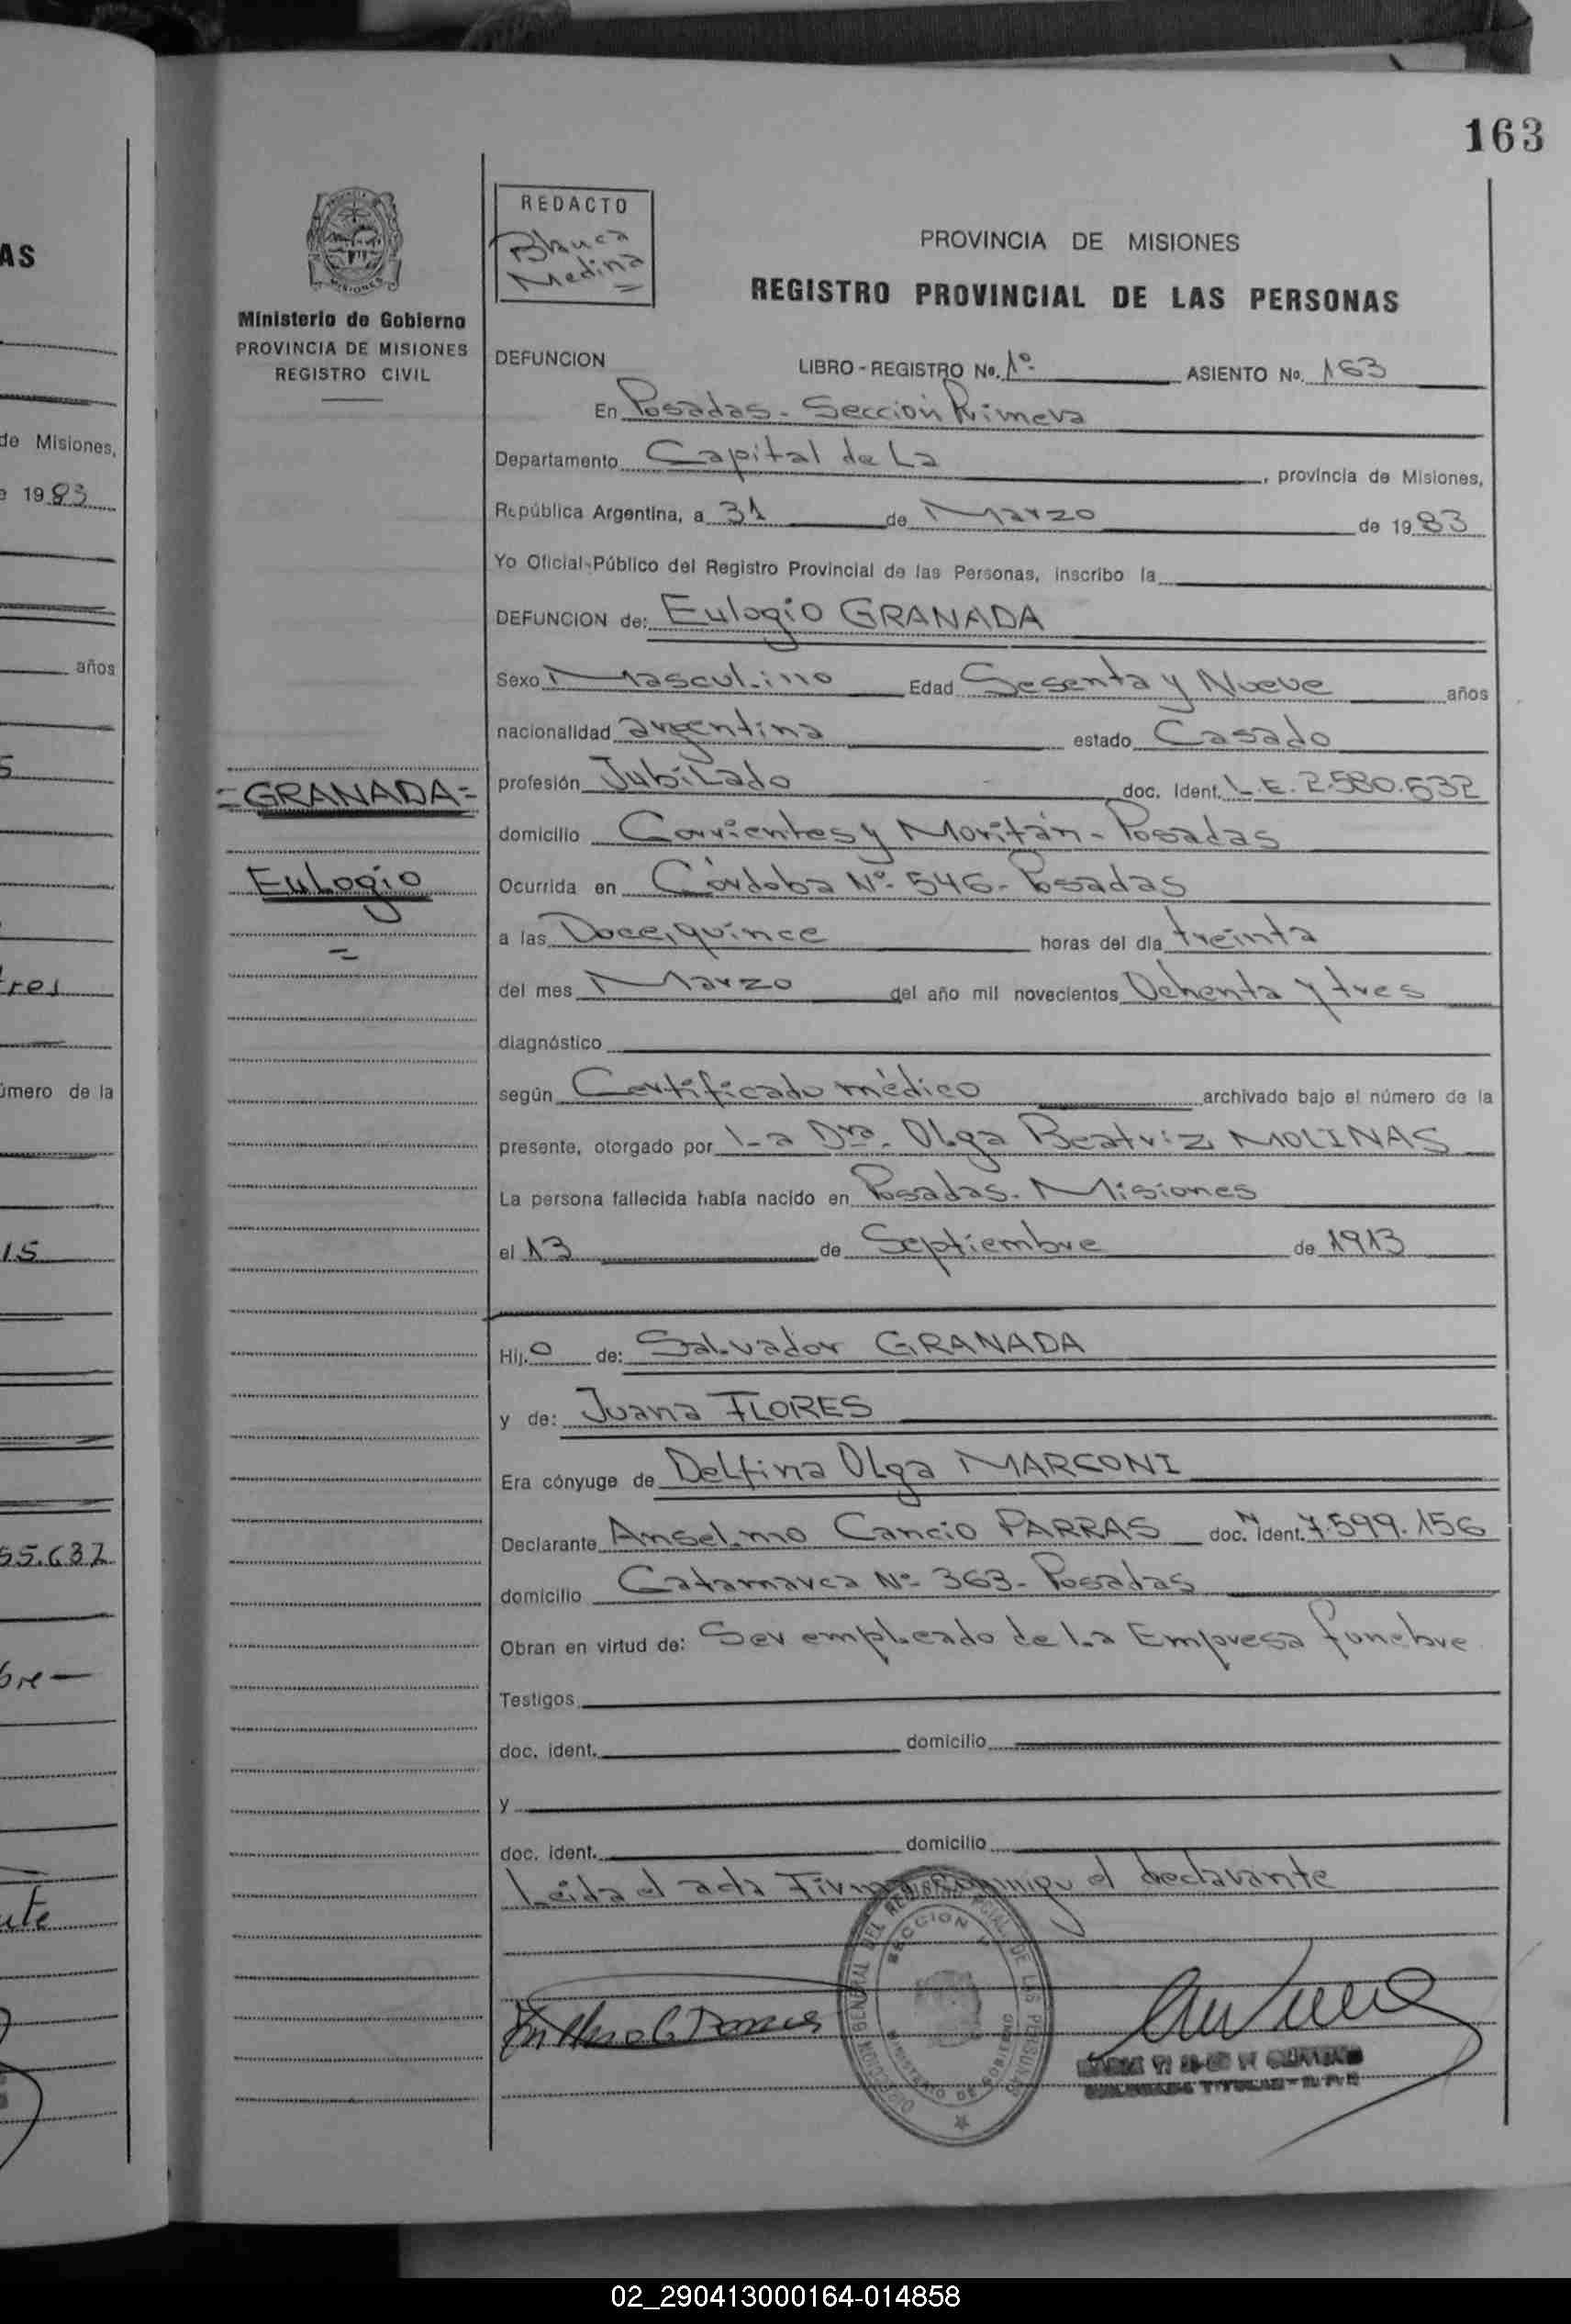 163
AS
de Misiones,
e 1983
años
5
tres
úmero de la
15
55.632
bre —
nte
MISIONES
Ministerio de Gobierno
PROVINCIA DE MISIONES
REGISTRO CIVIL
= GRANADA =
Eulogio
=
REDACTO
Blanca
Medina
=
PROVINCIA DE MISIONES
REGISTRO PROVINCIAL DE LAS PERSONAS
DEFUNCION LIBRO - REGISTRO No. 1º ASIENTO No. 163
En Posadas - Sección Primera
Departamento Capital de La , provincia de Misiones,
República Argentina, a 31 de Marzo de 1983
Yo Oficial Público del Registro Provincial de las Personas, inscribo la
DEFUNCION de: Eulogio GRANADA
Sexo Masculino Edad Sesenta y Nueve años
nacionalidad argentina estado Casado
profesión Jubilado doc. Ident. L.E. 2.580.632
domicilio Corrientes y Moritán - Posadas
Ocurrida en Córdoba Nº 546 - Posadas
a las Doce, quince horas del día treinta
del mes Marzo del año mil novecientos Ochenta y tres
diagnóstico
según Certificado médico archivado bajo el número de la
presente, otorgado por La Dra. Olga Beatriz MOLINAS
La persona fallecida había nacido en Posadas - Misiones
el 13 de Septiembre de 1913
Hij. o de: Salvador GRANADA
y de: Juana FLORES
Era cónyuge de Delfina Olga MARCONI
Declarante Anselmo Cancio PARRAS doc. Ident. Nº 7.599.156
domicilio Catamarca Nº 363 - Posadas
Obran en virtud de: Ser empleado de La Empresa funebre
Testigos
doc. ident. domicilio
y
doc. ident. domicilio
Leida el acta Firma conmigo el declarante
DIRECCION GENERAL DEL REGISTRO PROVINCIAL DE LAS PERSONAS
SECCION 1ª
MINISTERIO DE GOBIERNO
02_290413000164-014858